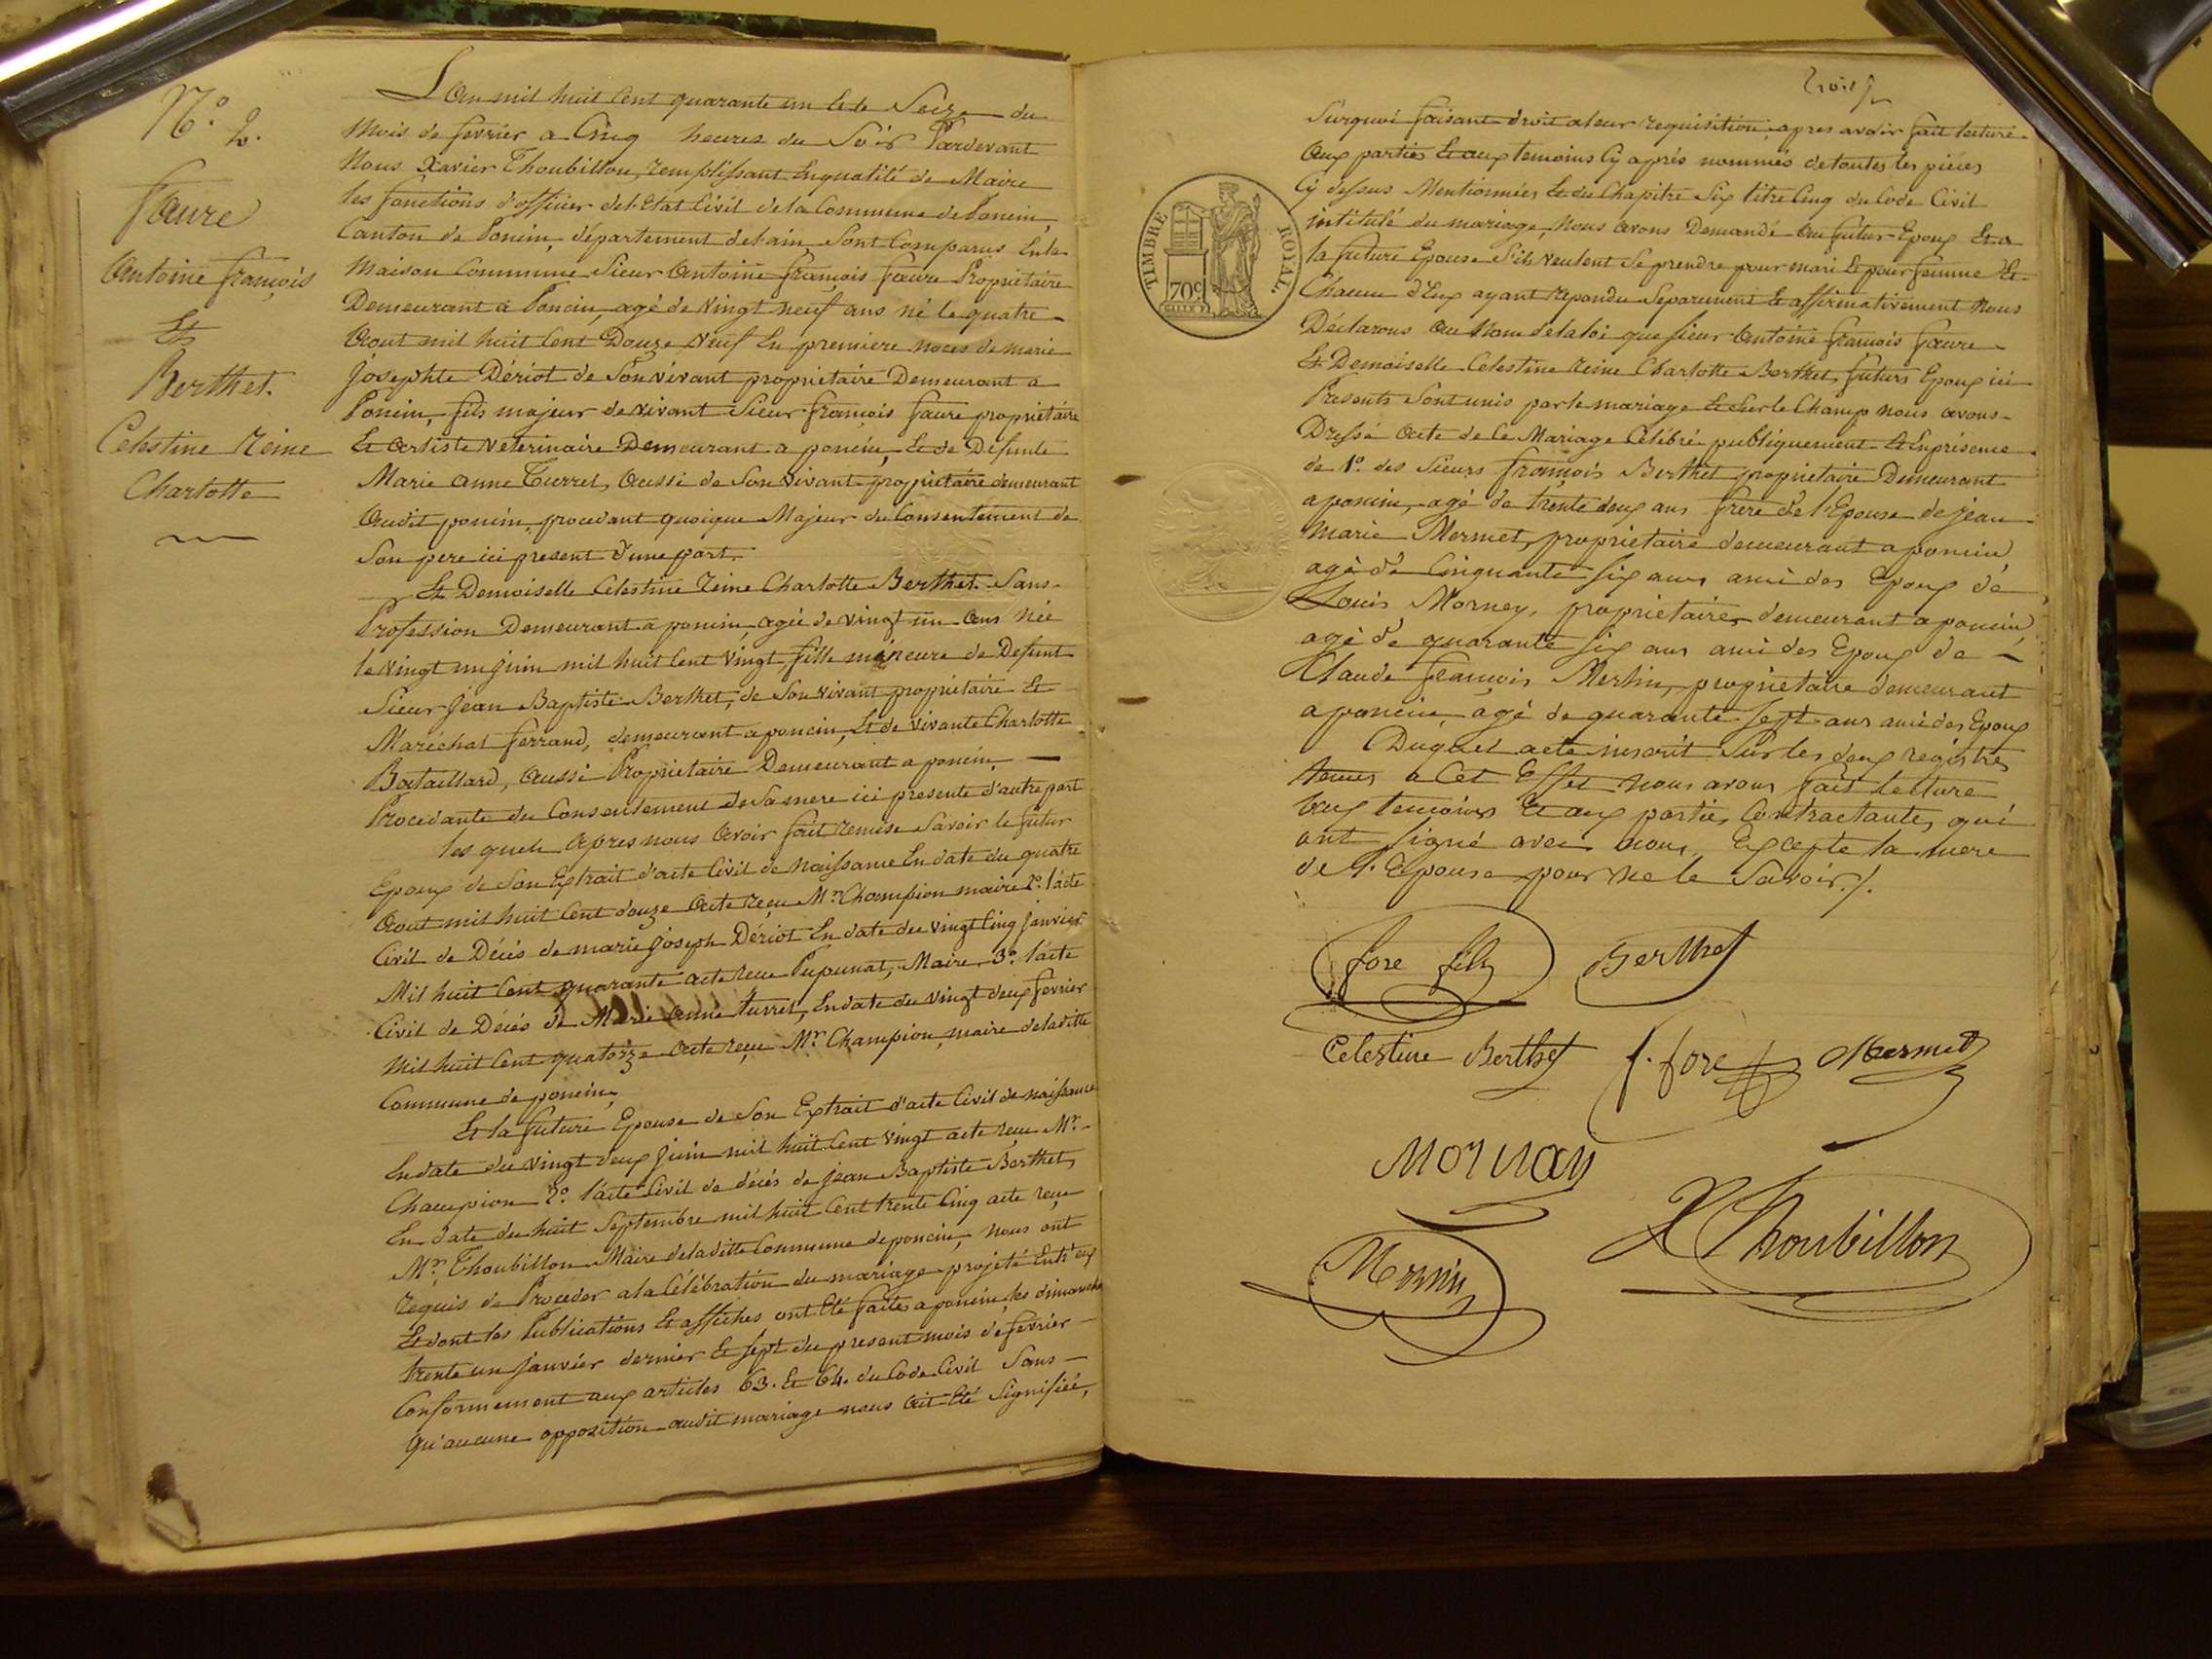 N° 2.
Faure
Antoine françois
Et
Berthet.
Celestine Reine
Charlotte
L'an mil huit Cent quarante un Et le Seize du
Mois de fevrier a Cinq heures du Soir Pardevant
Nous Xavier Thoubillon, remplissant En qualité de Maire
les fonctions d'officier del'Etat Civil dela Commune de Poncin,
Canton de Poncin, département delain, Sont Comparus En la
Maison Commune Sieur Antoine françois faure Propriétaire
Demeurant a Poncin, agé de vingt neuf ans né le quatre
Aout mil huit Cent Douze Veuf En premiere noces de marie
josephte Dériot de Son vivant propriétaire Demeurant a
Poncin, fils majeur de vivant Sieur françois faure propriétaire
Et Artiste Veterinaire Demeurant a poncin, Et de Défunte
Marie anne Turrel, Aussi de Son vivant propriétaire demeurant
Audit poncin, procedant quoique Majeur du Consentement de
Son pere ici present d'une part.
Et Demoiselle Celestine Reine Charlotte Berthet Sans
Profession Demeurant a poncin, agée de vingt un Ans née
le vingt un juin mil huit Cent vingt, fille mineure de Defunt
Sieur jean Baptiste Berthet, de Son vivant propriétaire Et
Maréchal ferrand, demeurant a poncin, Et de vivante Charlotte
Bataillard, Aussi Propriétaire Demeurant a poncin,
Procedante du Consentement de Sa mere ici presente d'autre part
les quels Apres nous Avoir fait remise Savoir le futur
Epoux de Son Extrait d'acte Civil de naissance En date du quatre
Aout mil huit Cent douze Acte reçu Mr Champion maire 2°. l'acte
Civil de Décés de marie joseph Dériot En date du vingt Cinq janvier
Mil huit Cent quarante acte reçu Pupunat, Maire. 3°. l'acte
Civil de Décés de Marie Anne turrel, En date du vingt deux fevrier
Mil huit Cent quatorze Acte reçu Mr Champion, maire deladitte
Commune de poncin,
Et la future Epouse de Son Extrait d'acte Civil de naissance
En date du vingt deux juin mil huit Cent vingt acte reçu Mr
Champion 2°. l'acte Civil de décés de jean Baptiste Berthet,
En date du huit Septembre mil huit Cent trente Cinq acte reçu
Mr Thoubillon Maire deladitte Commune de poncin, nous ont
requis de Proceder a la Célébration du mariage projeté Entr'eux
Et dont les Publications Et affiches ont Eté faites a poncin, les dimanche
trente un janvier dernier Et Sept du present mois de fevrier
Conformement aux articles 63. Et 64. du Code Civil Sans
Qu'aucune opposition audit mariage nous Ait Eté Signifiée,
trois
Surquoi faisant droit a leur requisition, apres avoir fait lecture
Aux parties Et aux temoins Cy aprés nommés de toutes les pièces
Cy dessus Mentionnées Et du Chapitre Six titre Cinq du Code Civil
intitulé du mariage, Nous avons Demandé Au futur Epoux Et a
la future Epouse S'ils veulent Se prendre pour mari Et pour femme Et
Chacun d'Eux ayant repondu Separement Et affirmativement Nous
Déclarons Au Nom de la loi que Sieur Antoine françois faure
Et Demoiselle Celestine Reine Charlotte Berthet, futurs Epoux ici
Presents Sont unis par le mariage Et Sur le Champ nous avons
Dressé Acte de Ce Mariage Célébré publiquement Et En présence
de 1°. des Sieurs françois Berthet propriétaire Demeurant
a poncin, agé de trente deux ans frere de l'Epouse de jean
Marie Mermet, propriétaire demeurant a poncin
agé de Cinquante Six ans ami des Epoux de
Louis Mornay, propriétaire demeurant a poncin,
agé de quarante Six ans ami des Epoux de
Claude françois Merlin, propriétaire demeurant
a poncin, agé de quarante Sept ans ami des Epoux
Duquel acte inscrit Sur les deux registres
tenus a Cet Effet nous avons fait lecture
Aux temoins Et aux parties Contractantes, qui
ont Signé avec nous, Excepte la mere
de l'Epouse pour ne le Savoir./.
TIMBRE ROYAL.
70c
fore fils
Berthet
Celestine Berthet
f. fore
Mermet
X Thoubillon